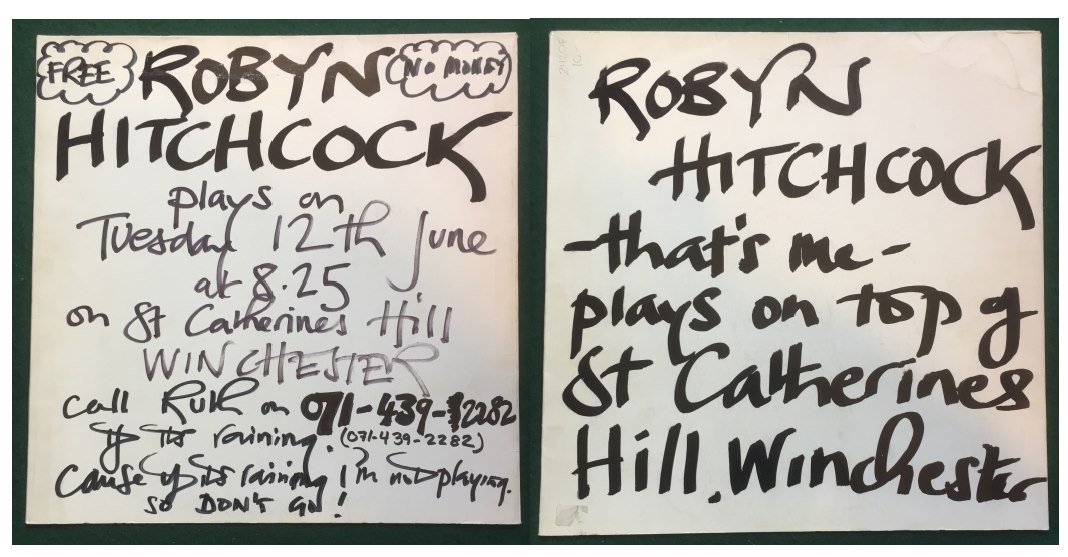 FREE ROBYN NO MONEY
HITCHCOCK
plays on
Tuesday 12th June
at 8.25
on St Catherines Hill
WINCHESTER
call Ruth on 071-439-2282
if its raining! (071-439-2282)
Cause if its raining I'm not playing.
so DON'T GO!
ROBYN
HITCHCOCK
-that's me-
plays on top of
St Catherines
Hill, Winchester